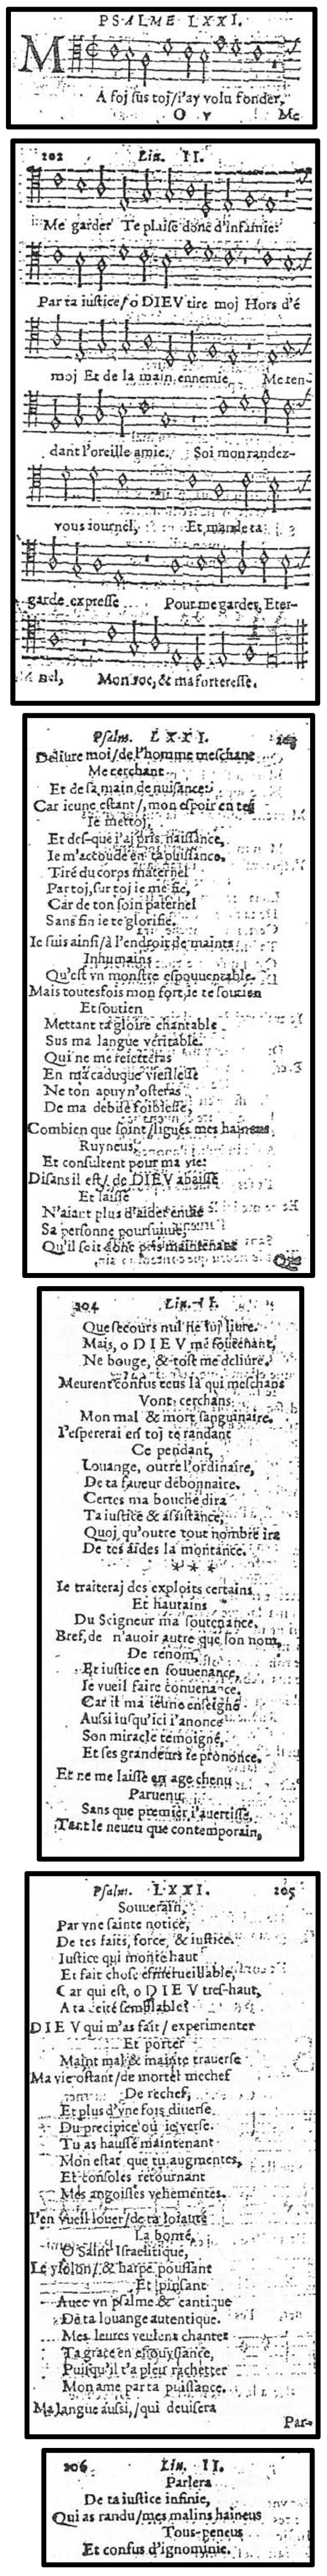 PSALME LXXI.
M
A foj sus toj/i'ay volu fonder,
O v Me
202 Liu. II.
Me garder Te plaise donc d'infamie:
Par ta iustice/o DIEV tire moj Hors d'é
moj Et de la main ennemie, Me ren-
dant l'oreille amie. Soi mon randez-
vous iournel, Et mande ta
garde expresse Pour me garder, Eter-
nel, Mon roc, & ma forteresse.
Psalm. LXXI. 203
Deliure moi/de l'homme meschant
Me cerchant
Et de sa main de nuisance:
Car ieune estant/, mon espoir en toj
Ie mettoj,
Et des-que i'aj pris naissance,
Ie m'accoudé en ta puissance.
Tiré du corps maternel
Par toj, sur toj ie me fie,
Car de ton soin paternel
Sans fin ie te glorifie.
Ie suis ainsi/à l'endroit de maints
Inhumains
Qu'est vn monstre espouuentable.
Mais toutesfois mon fort, ie te soutien
Et soutien
Mettant ta gloire chantable
Sus ma langue véritable.
Qui ne me reietteras
En ma caduque vieillesse
Ne ton apuy n'osteras
De ma debile foiblesse,
Combien que soint/ligués mes haineus
Ruyneus,
Et consultent pour ma vie:
Disans il est/ de DIEV abaissé
Et laissé
N'aiant plus d'aide
Sa personne poursuiuie,
Qu'il soit donc pris maintenant
Que
204 Liu. II.
Que secours nul ne luj liure.
Mais, o DIEV me soutenant,
Ne bouge, & tost me deliure.
Meurent confus ceus là qui meschans
Vont cerchans
Mon mal & mort sanguinaire.
I'espererai en toj te randant
Ce pendant,
Louange, outre l'ordinaire,
De ta faueur debonnaire.
Certes ma bouche dira
Ta iustice & assistance,
Quoj qu'outre tout nombre ira
De tes aides la montance.
***
Ie traiteraj des exploits certains
Et hautains
Du Seigneur ma soutenance,
Bref, de n'auoir autre que son nom,
De renom,
Et iustice en souuenance,
Ie vueil faire conuenance.
Car il m'a ieune enseigné
Aussi iusqu'ici i'anonce
Son miracle temoigné,
Et ses grandeurs ie prononce.
Et ne me laisse en age chenu
Paruenu,
Sans que premier i'auertisse,
Tant le neueu que contemporain,
Psalm. LXXI. 205
Souuerain,
Par vne sainte notice,
De tes faits, force, & iustice.
Iustice qui monte haut
Et fait chose esmerueillable,
Car qui est, o DIEV tres-haut,
A ta deité semblable?
DIEV qui m'as fait/ experimenter
Et porter
Maint mal & mainte trauerse
Ma vie ostant/de mortel mechef
De rechef,
Et plus d'vne fois diuerse
Du precipice où ie verse.
Tu as haussé maintenant
Mon estat que tu augmentes,
Et consoles retournant
Mes angoisses vehementes.
I'en vueil louer/de ta loiauté
La bonté,
O Saint Israelitique,
Le violon/, & harpe poussant
Et pinsant
Auec vn psalme & cantique
De ta louange autentique.
Mes leures veulent chanter
Ta grace en esiouyssance,
Puisqu'il t'a pleu rachetter
Mon ame par ta puissance.
Ma langue aussi,/qui deuisera
Par-
206 Liu. II.
Parlera
De ta iustice infinie,
Qui as randu/mes malins haineus
Tous-peneus
Et confus d'ignominie.